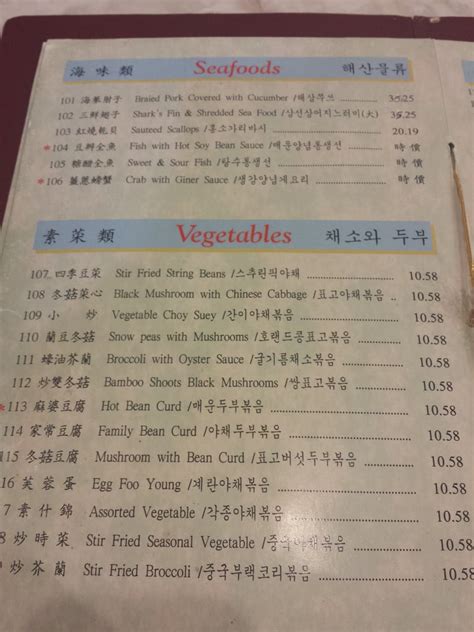 海味類 Seafoods 해산물류
101 海參肘子 Braied Pork Covered with Cucumber /해삼쭈쓰 35.25
102 三鮮翅子 Shark's Fin & Shredded Sea Food /삼선상어지느러미(大) 35.25
103 紅燒乾貝 Sauteed Scallops /홍소가리바시 20.19
*104 豆瓣全魚 Fish with Hot Soy Bean Sauce /매운양념통생선 時價
105 糖醋全魚 Sweet & Sour Fish /탕수통생선 時價
*106 薑蔥螃蟹 Crab with Giner Sauce /생강양념게요리 時價
素菜類 Vegetables 채소와 두부
107 四季豆菜 Stir Fried String Beans /스추린픽야채 10.58
108 冬菇菜心 Black Mushroom with Chinese Cabbage /표고야채볶음 .. 10.58
109 小 炒 Vegetable Choy Suey /간이야채볶음 10.58
110 蘭豆冬菇 Snow peas with Mushrooms /호랜드콩표고볶음 10.58
111 蠔油芥蘭 Broccoli with Oyster Sauce /굴기름채소볶음 10.58
112 炒雙冬菇 Bamboo Shoots Black Mushrooms /쌍표고볶음 10.58
*113 麻婆豆腐 Hot Bean Curd /매운두부볶음 10.58
114 家常豆腐 Family Bean Curd /야채두부볶음 10.58
115 冬菇豆腐 Mushroom with Bean Curd /표고버섯두부볶음 10.58
16 芙蓉蛋 Egg Foo Young /계란야채볶음 10.58
7 素什錦 Assorted Vegetable /각종야채볶음 10.58
8 炒時菜 Stir Fried Seasonal Vegetable /중국야채볶음 10.58
炒芥蘭 Stir Fried Broccoli /중국부랙코리볶음 10.58